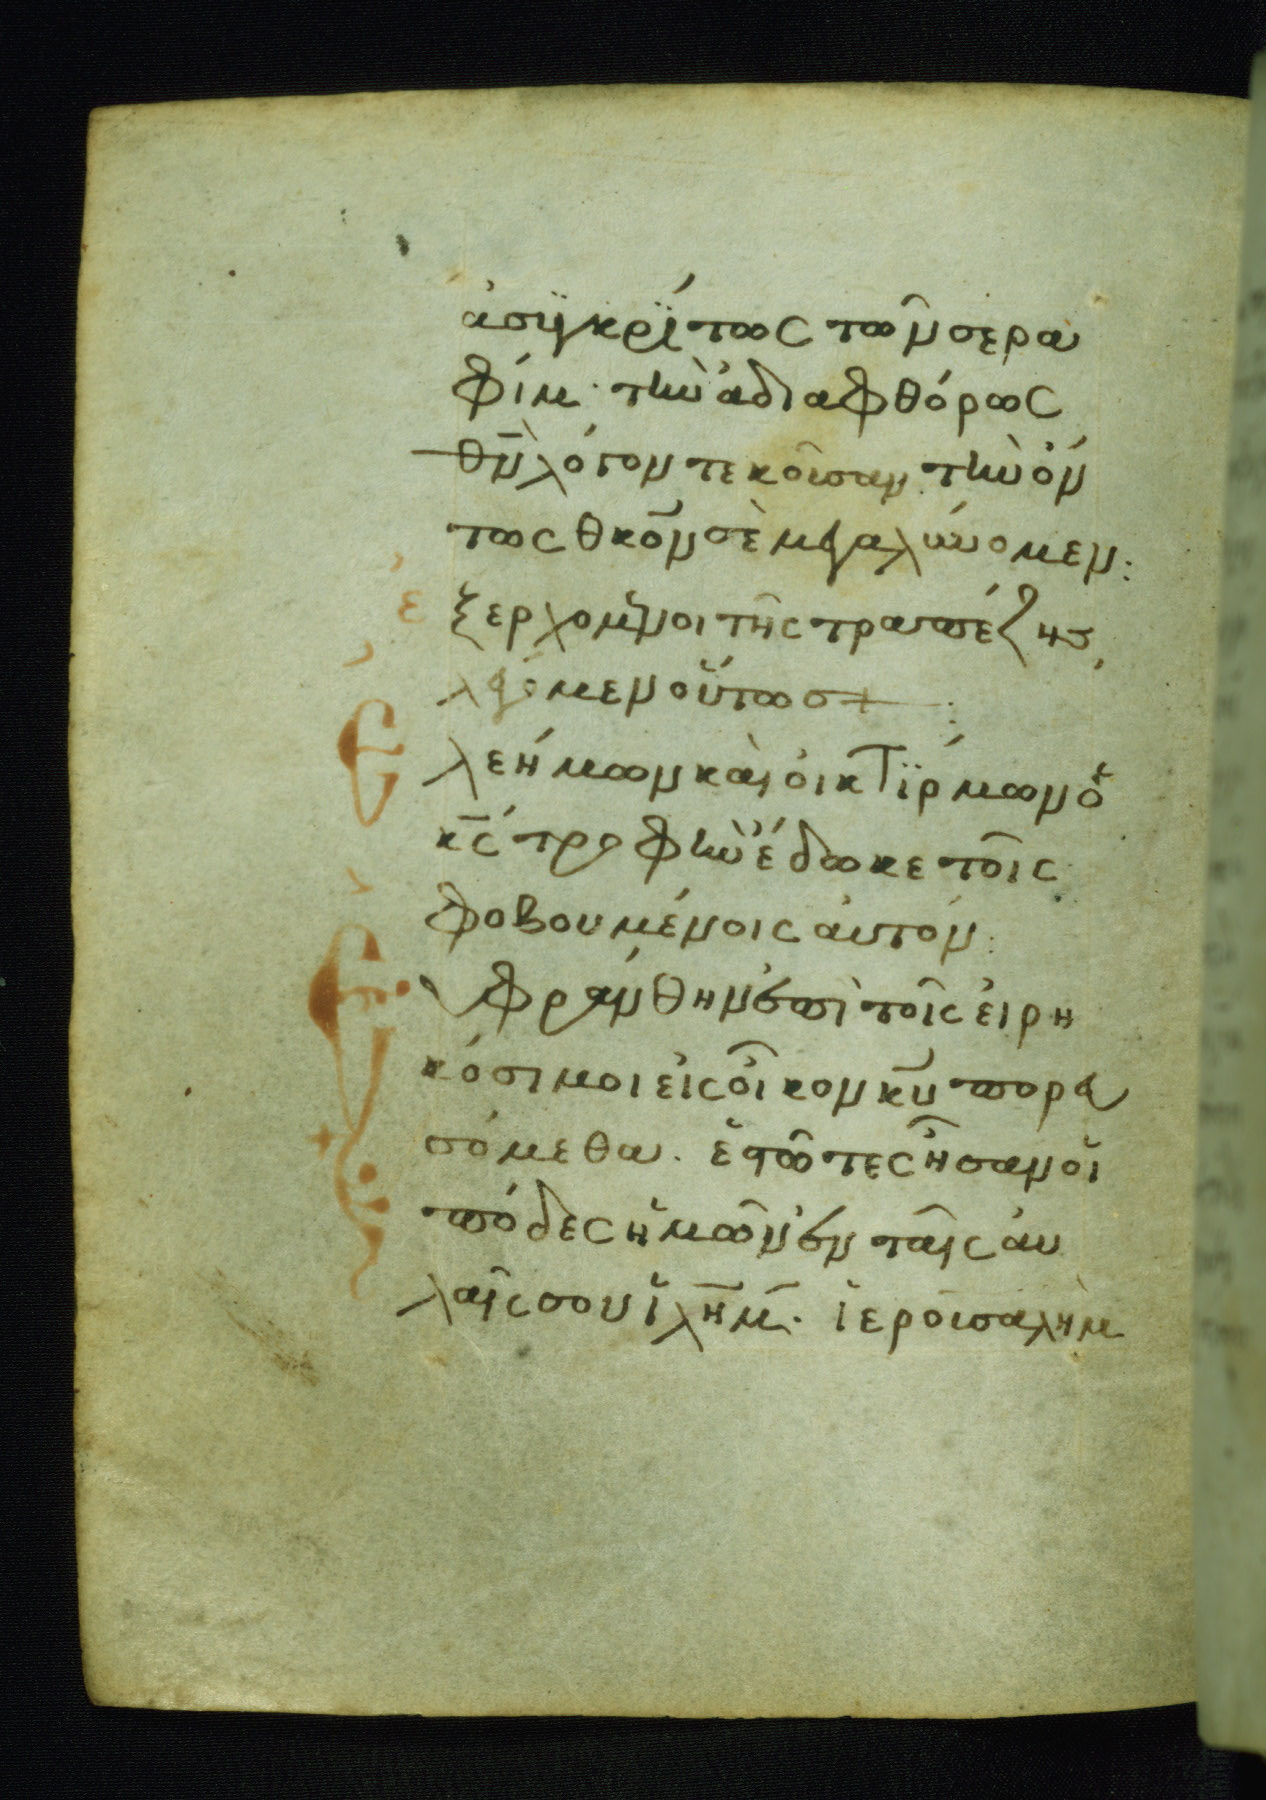 ἀσϋγκρΐτως τῶν σερα
φίμ· τὴν ἀδιαφθόρως
θ̅ν̅ λόγον τεκοῦσαν. τὴν ὄν
τως θ̅κ̅ο̅ν σὲ μεγαλύνομεν:
ἐξερχόμενοι τῆς τραπέζης,
λέγομεν οὕτως +:
Ἐλεήμων καὶ οἰκτΐρμων ὁ
κ̅ς̅ τροφὴν ἔδωκε τοῖς
φοβουμένοις αὐτόν:
Εὐφράνθην ἐπὶ τοῖς εἰρη
κόσι μοι εἰς οἶκον κ̅υ̅ πορευ
σόμεθα. ἑστῶτες ἦσαν οἱ
πόδες ἡμῶν ἐν ταῖς αὐ
λαῖς σου ἰ̅λ̅η̅μ̅. ἱερουσαλὴμ